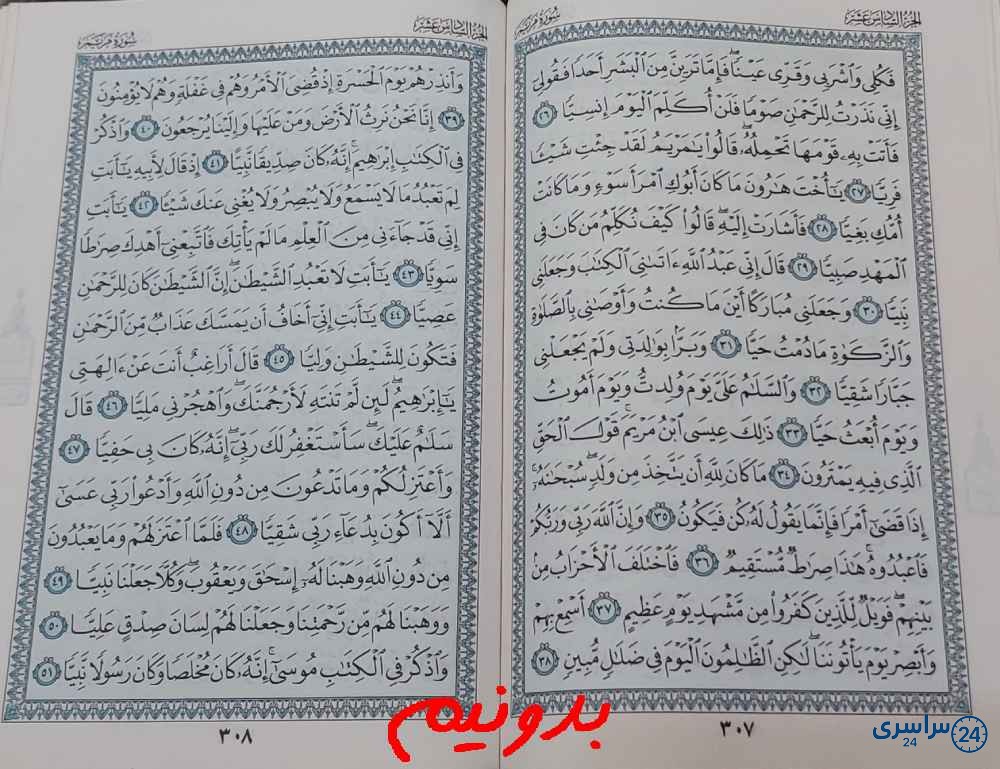 الجزء السادس عشر
سورة مريم
فَكُلِى وَٱشْرَبِى وَقَرِّى عَيْنًا ۖ فَإِمَّا تَرَيِنَّ مِنَ ٱلْبَشَرِ أَحَدًا فَقُولِىٓ
إِنِّى نَذَرْتُ لِلرَّحْمَـٰنِ صَوْمًا فَلَنْ أُكَلِّمَ ٱلْيَوْمَ إِنسِيًّا ٢٦
فَأَتَتْ بِهِۦ قَوْمَهَا تَحْمِلُهُۥ ۖ قَالُوا۟ يَـٰمَرْيَمُ لَقَدْ جِئْتِ شَيْـًٔا
فَرِيًّا ٢٧ يَـٰٓأُخْتَ هَـٰرُونَ مَا كَانَ أَبُوكِ ٱمْرَأَ سَوْءٍ وَمَا كَانَتْ
أُمُّكِ بَغِيًّا ٢٨ فَأَشَارَتْ إِلَيْهِ ۖ قَالُوا۟ كَيْفَ نُكَلِّمُ مَن كَانَ فِى
ٱلْمَهْدِ صَبِيًّا ٢٩ قَالَ إِنِّى عَبْدُ ٱللَّهِ ءَاتَىٰنِىَ ٱلْكِتَـٰبَ وَجَعَلَنِى
نَبِيًّا ٣٠ وَجَعَلَنِى مُبَارَكًا أَيْنَ مَا كُنتُ وَأَوْصَـٰنِى بِٱلصَّلَوٰةِ
وَٱلزَّكَوٰةِ مَا دُمْتُ حَيًّا ٣١ وَبَرًّۢا بِوَٰلِدَتِى وَلَمْ يَجْعَلْنِى
جَبَّارًا شَقِيًّا ٣٢ وَٱلسَّلَـٰمُ عَلَىَّ يَوْمَ وُلِدتُّ وَيَوْمَ أَمُوتُ
وَيَوْمَ أُبْعَثُ حَيًّا ٣٣ ذَٰلِكَ عِيسَى ٱبْنُ مَرْيَمَ ۚ قَوْلَ ٱلْحَقِّ
ٱلَّذِى فِيهِ يَمْتَرُونَ ٣٤ مَا كَانَ لِلَّهِ أَن يَتَّخِذَ مِن وَلَدٍ ۖ سُبْحَـٰنَهُۥٓ ۚ
إِذَا قَضَىٰٓ أَمْرًا فَإِنَّمَا يَقُولُ لَهُۥ كُن فَيَكُونُ ٣٥ وَإِنَّ ٱللَّهَ رَبِّى وَرَبُّكُمْ
فَٱعْبُدُوهُ ۚ هَـٰذَا صِرَٰطٌ مُّسْتَقِيمٌ ٣٦ فَٱخْتَلَفَ ٱلْأَحْزَابُ مِنۢ
بَيْنِهِمْ ۖ فَوَيْلٌ لِّلَّذِينَ كَفَرُوا۟ مِن مَّشْهَدِ يَوْمٍ عَظِيمٍ ٣٧ أَسْمِعْ بِهِمْ
وَأَبْصِرْ يَوْمَ يَأْتُونَنَا ۖ لَـٰكِنِ ٱلظَّـٰلِمُونَ ٱلْيَوْمَ فِى ضَلَـٰلٍ مُّبِينٍ ٣٨
٣٠٧
الجزء السادس عشر
سورة مريم
وَأَنذِرْهُمْ يَوْمَ ٱلْحَسْرَةِ إِذْ قُضِىَ ٱلْأَمْرُ وَهُمْ فِى غَفْلَةٍ وَهُمْ لَا يُؤْمِنُونَ
٣٩ إِنَّا نَحْنُ نَرِثُ ٱلْأَرْضَ وَمَنْ عَلَيْهَا وَإِلَيْنَا يُرْجَعُونَ ٤٠ وَٱذْكُرْ
فِى ٱلْكِتَـٰبِ إِبْرَٰهِيمَ ۚ إِنَّهُۥ كَانَ صِدِّيقًا نَّبِيًّا ٤١ إِذْ قَالَ لِأَبِيهِ يَـٰٓأَبَتِ
لِمَ تَعْبُدُ مَا لَا يَسْمَعُ وَلَا يُبْصِرُ وَلَا يُغْنِى عَنكَ شَيْـًٔا ٤٢ يَـٰٓأَبَتِ
إِنِّى قَدْ جَآءَنِى مِنَ ٱلْعِلْمِ مَا لَمْ يَأْتِكَ فَٱتَّبِعْنِىٓ أَهْدِكَ صِرَٰطًا
سَوِيًّا ٤٣ يَـٰٓأَبَتِ لَا تَعْبُدِ ٱلشَّيْطَـٰنَ ۖ إِنَّ ٱلشَّيْطَـٰنَ كَانَ لِلرَّحْمَـٰنِ
عَصِيًّا ٤٤ يَـٰٓأَبَتِ إِنِّىٓ أَخَافُ أَن يَمَسَّكَ عَذَابٌ مِّنَ ٱلرَّحْمَـٰنِ
فَتَكُونَ لِلشَّيْطَـٰنِ وَلِيًّا ٤٥ قَالَ أَرَاغِبٌ أَنتَ عَنْ ءَالِهَتِى
يَـٰٓإِبْرَٰهِيمُ ۖ لَئِن لَّمْ تَنتَهِ لَأَرْجُمَنَّكَ ۖ وَٱهْجُرْنِى مَلِيًّا ٤٦ قَالَ
سَلَـٰمٌ عَلَيْكَ ۖ سَأَسْتَغْفِرُ لَكَ رَبِّىٓ ۖ إِنَّهُۥ كَانَ بِى حَفِيًّا ٤٧
وَأَعْتَزِلُكُمْ وَمَا تَدْعُونَ مِن دُونِ ٱللَّهِ وَأَدْعُوا۟ رَبِّى عَسَىٰٓ
أَلَّآ أَكُونَ بِدُعَآءِ رَبِّى شَقِيًّا ٤٨ فَلَمَّا ٱعْتَزَلَهُمْ وَمَا يَعْبُدُونَ
مِن دُونِ ٱللَّهِ وَهَبْنَا لَهُۥٓ إِسْحَـٰقَ وَيَعْقُوبَ ۖ وَكُلًّا جَعَلْنَا نَبِيًّا ٤٩
وَوَهَبْنَا لَهُم مِّن رَّحْمَتِنَا وَجَعَلْنَا لَهُمْ لِسَانَ صِدْقٍ عَلِيًّا ٥٠
وَٱذْكُرْ فِى ٱلْكِتَـٰبِ مُوسَىٰٓ ۚ إِنَّهُۥ كَانَ مُخْلَصًا وَكَانَ رَسُولًا نَّبِيًّا ٥١
٣٠٨
بدونیم
سراسری 24
24